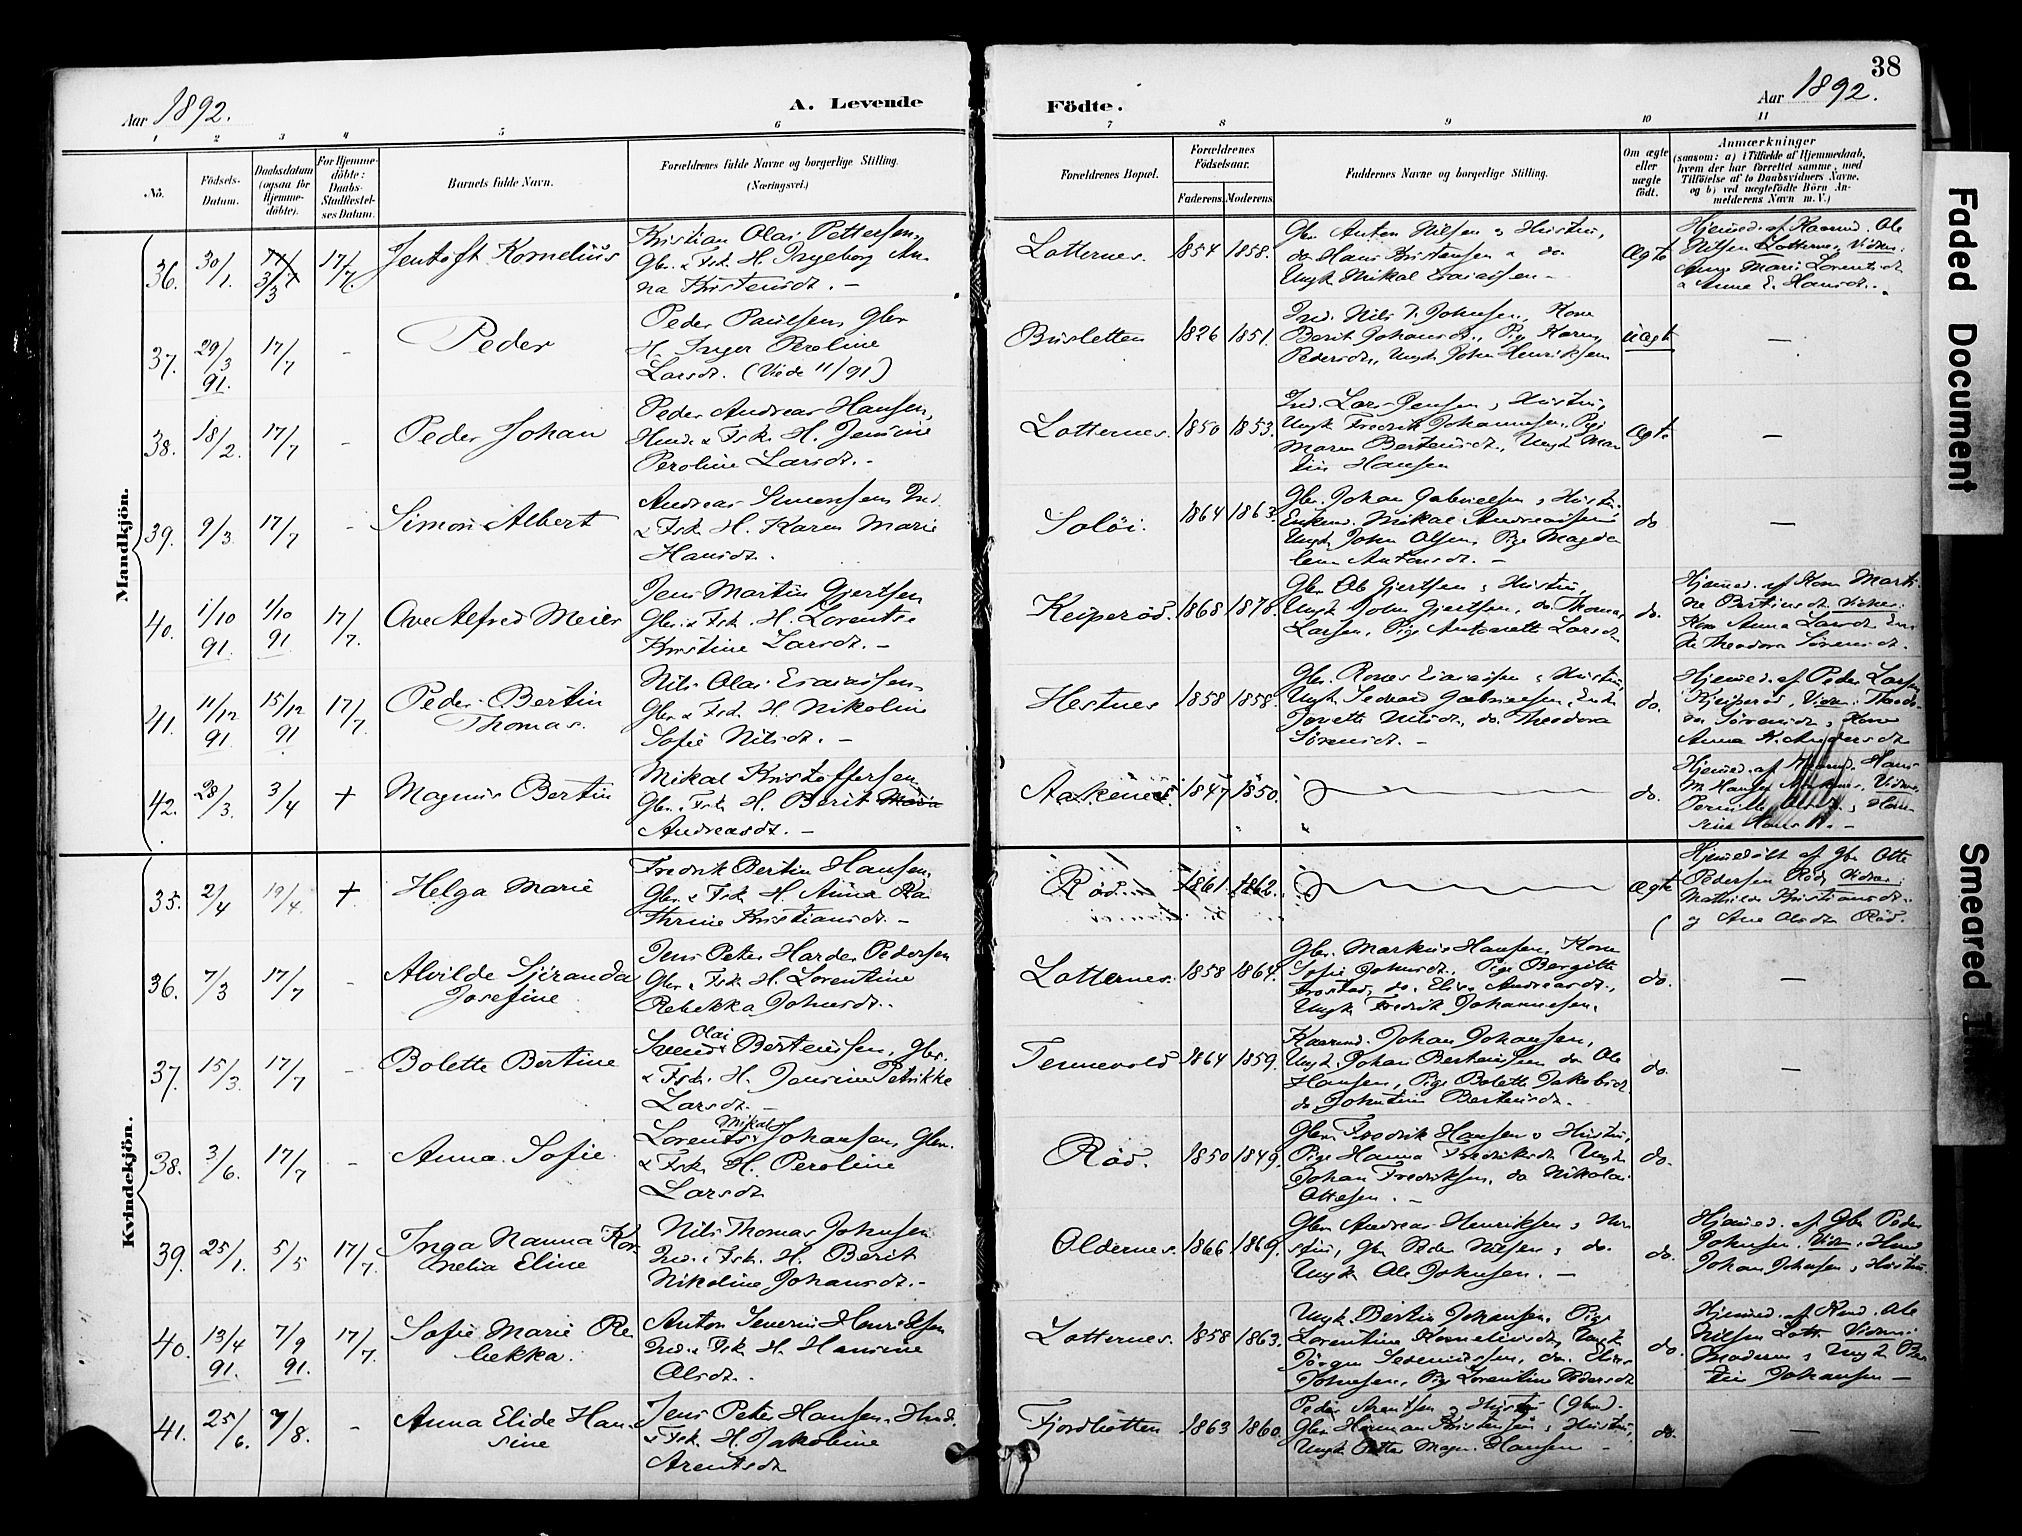 38
Aar 1892.
A. Levende
Födte.
Aar 1892.
1 2 3 4 5 6 7 8 9 10 11
No.
Födsels-
Datum.
Daabsdatum
(ogsaa for
Hjemme-
döbte).
For Hjemme-
döbte:
Daabs-
Stadfæstel-
ses Datum.
Barnets fulde Navn.
Forældrenes fulde Navne og borgerlige Stilling.
(Næringsvei.)
Forældrenes Bopæl.
Forældrenes
Födselsaar.
Faderens. Moderens.
Faddernes Navne og borgerlige Stilling.
Om ægte
eller
uægte
födt.
Anmærkninger
(saasom: a) i Tilfælde af Hjemmedaab,
hvem der har forrettet samme, med
Tilföielse af to Daabsvidners Navne,
og b) ved uægtefödte Börn An-
melderens Navn m. V.)
Mandkjön.
36. 30/1. 3/3 17/7. Jentoft Kornelius
Kristian Olai Pettersen,
Gbr. & Fsk. H. Ingeborg An-
na Kristensdt. —
Lotternes. 1854 1858.
Gbr. Anton Nilsen & Hustru,
do Hans Kristensen & do
Ungk. Mikal Esaiassen —
Ægte
Hjemmed. af Kaarmd. Ole
Nilsen Lotternes, Vidner:
Marie Lorentsdt
& Anne E. Hansdt.
37. 29/3 91. 17/7 - Peder
Peder Paulsen Gbr
H. Inger Peroline
Larsdt. (Viede 11/91)
Busletten 1826 1851.
Ind. Nils P. Johnsen, Kone
Berit Johansdt., Pig. Karen
Pedersdt., Ungk. John Henriksen
Uægte —
38. 18/2. 17/7 - Peder Johan
Peder Andreas Hansen,
Hmd. & Fsk. H. Jensine
Peroline Larsdt. -
Lotternes. 1850 1853.
Ind. Lars Jensen & Hustru,
Ungk. Fredrik Johannesen, Pige
Maren Bertensdt., Ungk. Mar-
tin Hansen
Ægte —
39. 9/3. 17/7 - Simon Albert
Andreas Simonsen Ind.
& Fsk. H. Karen Marie
Hansdt.
Solöi. 1864 1863.
Gbr. Johan Gabrielsen & Hustru,
Enkem. Mikal Andreassen
Ungk. John Olsen, Pige Magda-
lena Antonsdt. —
do. —
40. 1/10 91 1/10 91 17/7. Ove Alfred Meier
Jens Martin Gjertsen
Gbr. & Fsk. H. Lorents-
Kristine Larsdt. —
Keiperöd. 1868 1878.
Gbr. Ole Gjertsen & Hustru,
Ungk. John Gjertsen, do. Thomas
Larsen, Pige Antonette Larsdt
do.
Hjemmed. af Kone Marti-
ne Bertinsdt. Vidner:
Kone Anna Larsdt En-
ke Theodora Sörensdt.
41. 11/12 91 15/12 91 17/7. Peder Bertin
Thomas.
Nils Olai Esaiassen
Gbr. & Fsk. H. Nikoline
Sofie Nilsdt. —
Hestnes 1858 1858.
Gbr. Esaiassen & Hustru,
Ungk. Gabrielsen, Enke
Nilsdt, do. Theodora
Sörensdt. —
do.
Hjemmed. af Peder Larsen
Keiperöd, Vidn: Theodo-
ra Sörensdt & Kone
Anna K. Andersdt
42. 28/3. 3/4 + Magnus Bertin
Mikal Kristoffersen,
Gbr. & Fsk. H. Berit Maria
Andreasdt. —
Aakenes. 1847 1850.
do.
Hjemmed. af Hans
M. Hansen Vidner
Pernille Olsdt. & Han-
sine Hansdt. —
Kvindekjön.
35. 2/4 19/4. + Helga Marie
Fredrik Bertin Hansen,
Gbr. & Fsk. H. Anna Ka-
thrine Kristiansdt. —
Röd. 1861 1862.
Ægte
Hjemmedöbt af Gbr Otte
Pedersen Röd, Vidner:
Mathilde Kristiansdt.
og Ane Olsdt Röd.
36. 7/3 17/7 - Alvilde Sjeranda
Josefine
Jens Peter Harder Pedersen
Gbr. & Fsk. H. Lorentine
Rebekka Johnsdt. -
Lotternes. 1858 1864.
Gbr. Markus Hansen, Kone
Sofie Johnsdt., Pige Bergitte
Frostad, do. Elise Andreasdt.,
Ungk. Fredrik Johannesen.
do. —
37. 15/3. 17/7 - Bolette Bertine
Svend Olai Bertensen, Gbr.
& Fsk. H. Jensine Petrikke
Larsdt. —
Tennevold 1864 1859.
Kaarmd. Johan Johansen,
Ungk. Johan Bertensen do Ole
Hansen, Pige Bolette Jakobsdt
do. Johntine Bertensdt.
do. —
38. 3/6. 17/7 - Anna Sofie
Lorents Mikal Johansen, Gbr.
& Fsk. H. Peroline
Larsdt
Röd. 1850 1849.
Gbr. Fredrik Hansen & Hustru,
Pige Hanna Fredriksdt Ungk
Johan Fredriksen, do Nikolai
Ottesen. —
do.
39. 25/1. 5/5 17/7. Inga Nanna Kor-
nelia Eline
Nils Thomas Johnsen
Ind. & Fsk. H. Berit
Nikoline Johansdt. -
Oldernes. 1866 1869.
Gbr Andreas Henriksen & Hu-
stru, Gbr Peder Nilsen & do.
Ungk. Ole Johnsen. —
do.
Hjemmed. af Gbr Peder
Johnsen. Vidn: Hmd
Johan Johnsen & Hustru
40. 13/4 91. 7/9 91. 17/7. Sofie Marie Re-
bekka.
Anton Severin Henriksen
Ind. & Fsk. H. Hansine
Olsdt.
Lotternes. 1858 1863.
Ungk. Bertin Johansen, Pige
Lorentine Korneliusdt, Ungk
Jörgen Sedeniussen, do. Elias
Johnsen, Pige Lorentine Pedersdt
do.
Hjemmed. af Kmd. Ole
Nilsen Lott. Vidner:
Moderen & Ungk Ber-
tin Johansen —
41. 25/6. 7/8. - Anna Elide Han-
sine
Jens Peter Hansen, Hmd.
& Fsk. H. Jakobine
Arentsdt
Fjordbotten 1863 1860.
Peder Arentsen & Hustru (Gbr).
Gbr. Herman Kristensen & Hustru,
Ungk. Petter Magn. Hansen —
do. —
Faded Document
Smeared